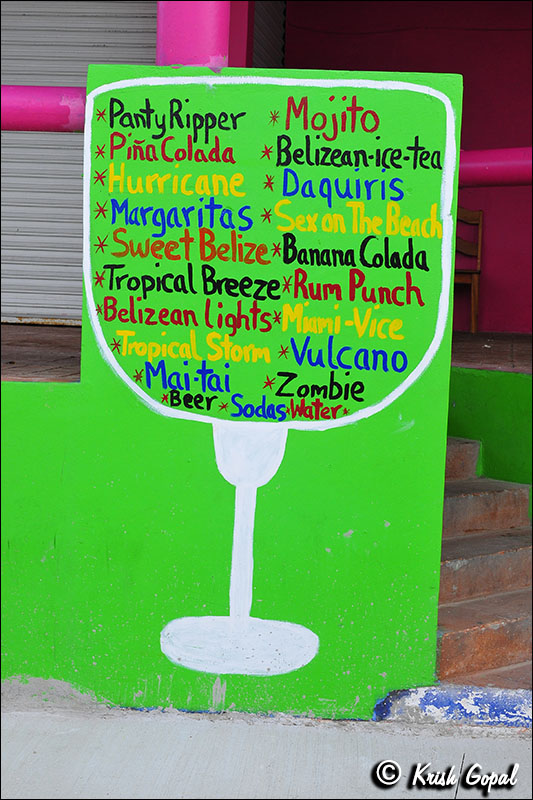 *Panty Ripper *Mojito
*Piña Colada *Belizean-ice-tea
*Hurricane *Daquiris
*Margaritas *Sex on The Beach
*Sweet Belize *Banana Colada
*Tropical Breeze *Rum Punch
*Belizean lights *Miami-Vice
*Tropical Storm *Vulcano
*Mai-tai *Zombie
*Beer *Sodas *Water *
© Krish Gopal